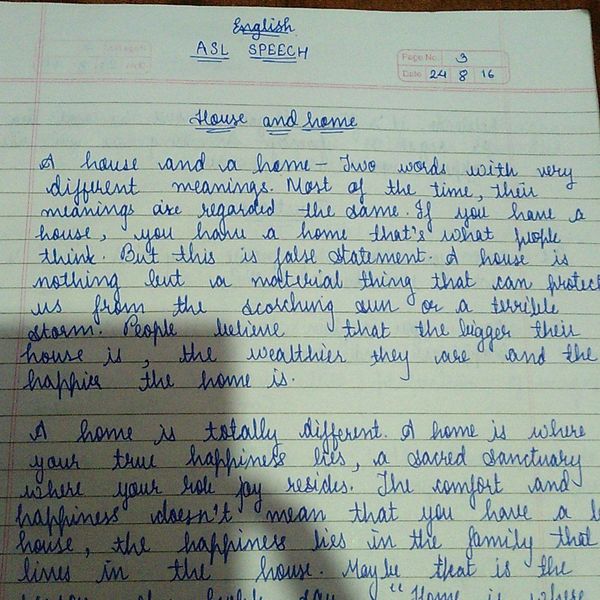 English
ASL SPEECH
Page No. 3
Date 24 8 16
House and home
A house and a home - Two words with very
different meanings. Most of the time, their
meanings are regarded the same. If you have a
house, you have a home that's what people
think. But this is false statement. A house is
nothing but a material thing that can protect
us from the scorching sun or a terrible
storm. People believe that the bigger their
house is, the wealthier they are and the
happier the home is.
A home is totally different. A home is where
your true happiness lies, a sacred sanctuary
where your joy resides. The comfort and
happiness doesn't mean that you have a
house, the happiness lies in the family that
lives in the house. Maybe that is the
"Home is where